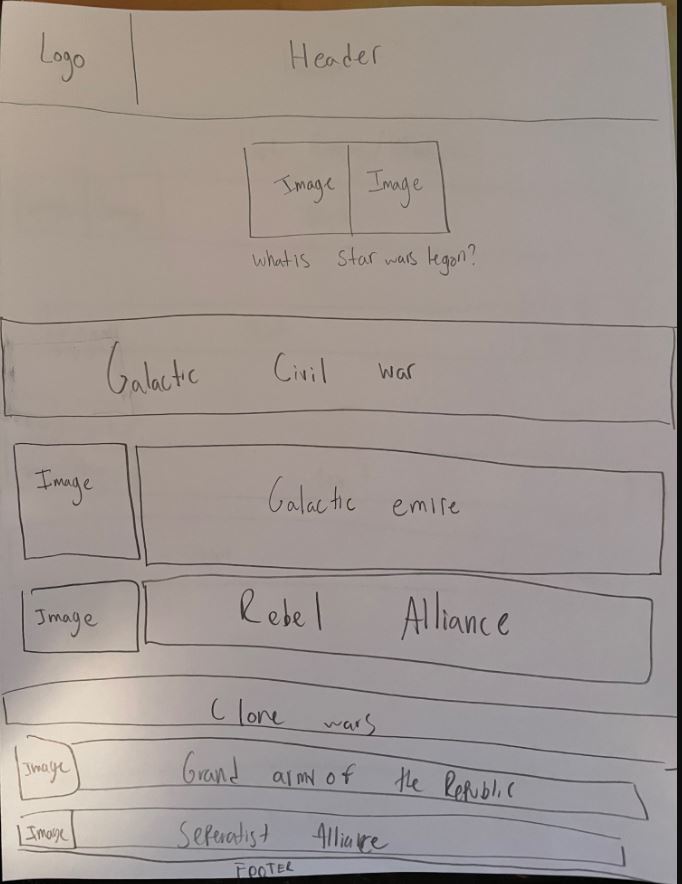 Logo
Header
Image
Image
what is Star wars legon?
Galactic Civil war
Image
Galactic emire
Image
Rebel Alliance
Clone wars
Image
Grand army of the Republic
Image
Seperatist Alliance
FOOTER